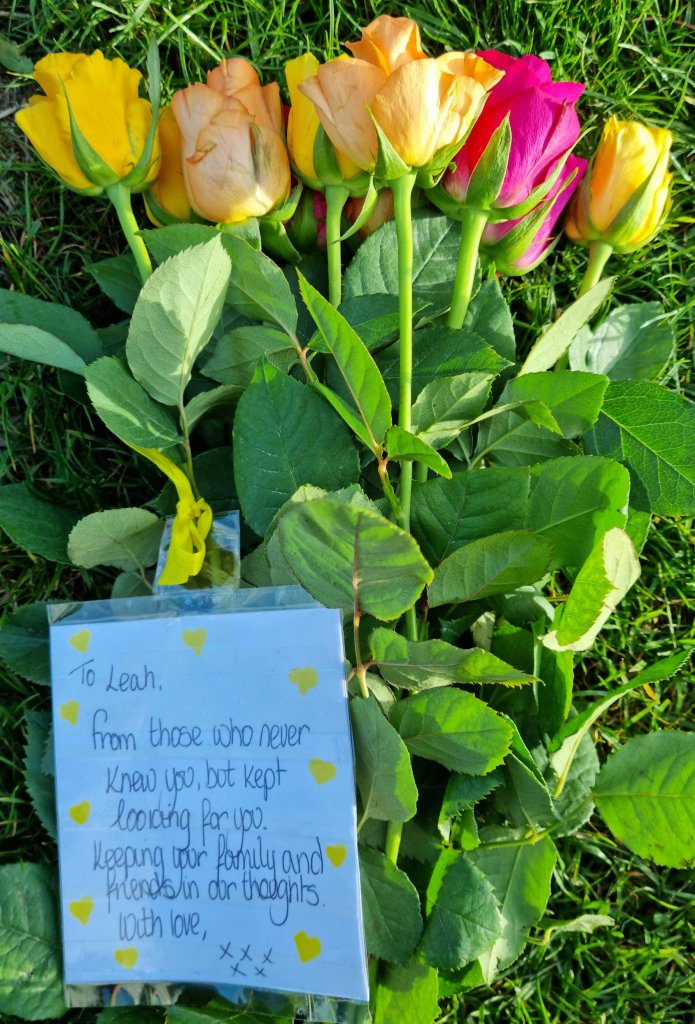 To Leah,
from those who never
knew you, but kept
looking for you.
Keeping your family and
friends in our thoughts.
With love,
x x x
x x